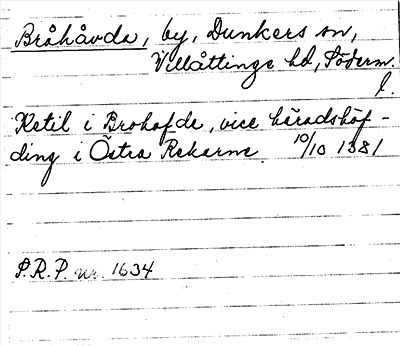 Bråhåvda, by, Dunkers sn,
Villåttinge hd, Söderm.
l.
Ketil i Brohofde, vice häradshöf-
ding i Östra Rekarne 10/10 1381
S.R.P. nr. 1634